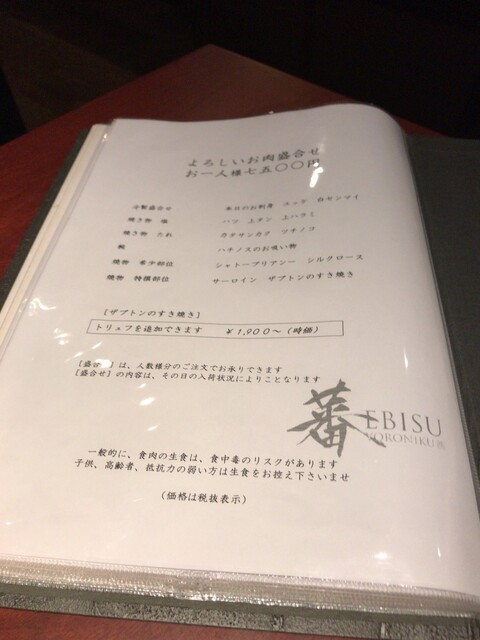 よろしいお肉盛合せ
お一人様七五〇〇円
冷製盛合せ 本日のお刺身 ユッケ 白センマイ
焼き物 塩 ハツ 上タン 上ハラミ
焼き物 たれ カタサンカク ツチノコ
椀 ハチノスのお吸い物
焼物 希少部位 シャトーブリアンー シルクロース
焼物 特撰部位 サーロイン ザブトンのすき焼き
[ザブトンのすき焼き]
トリュフを追加できます ¥1,900〜(時価)
[盛合せ]は、人数様分のご注文でお承りできます
[盛合せ]の内容は、その日の入荷状況によりことなります
蕃 EBISU
YORONIKU
一般的に、食肉の生食は、食中毒のリスクがあります
子供、高齢者、抵抗力の弱い方は生食をお控え下さいませ
(価格は税抜表示)